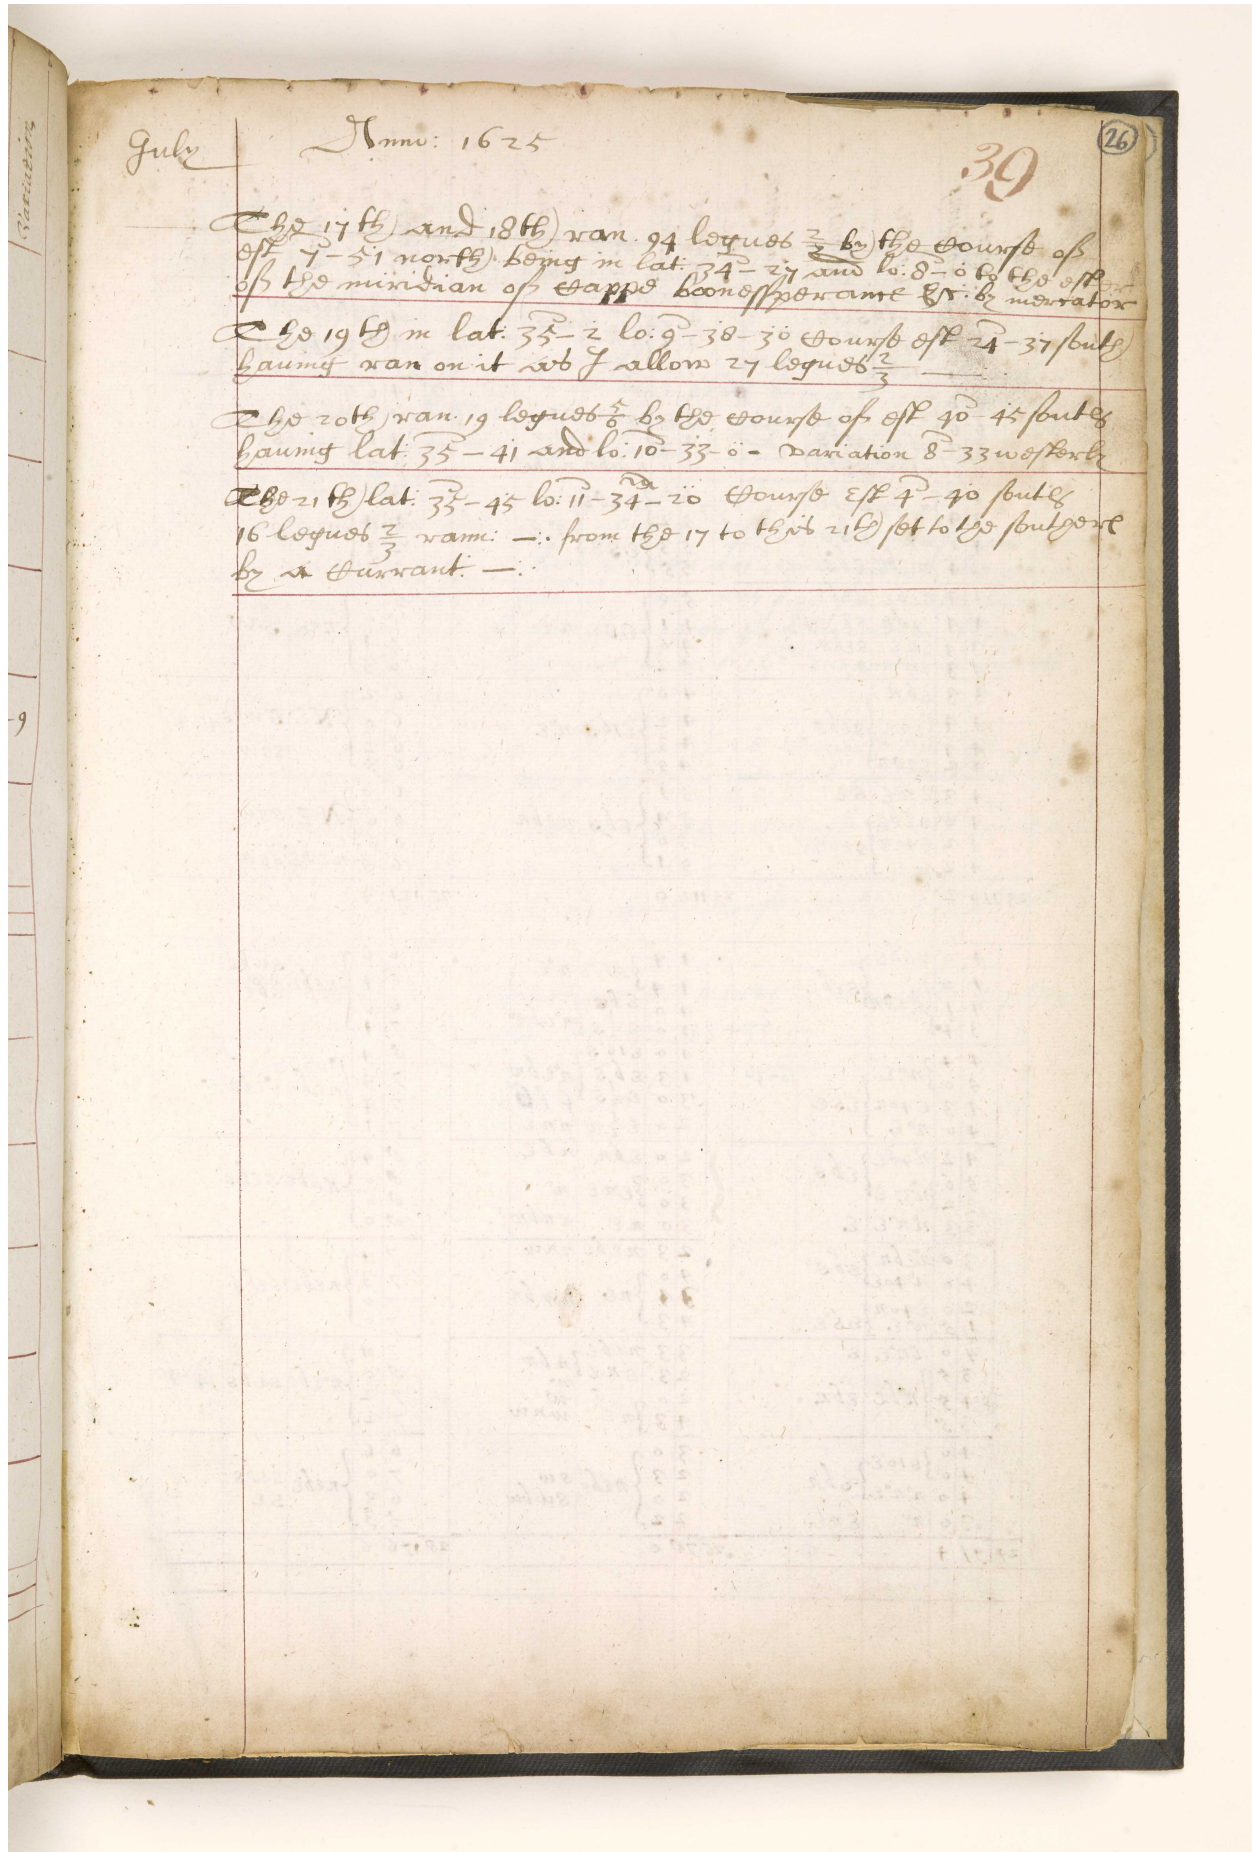 July Anno: 1625
26
39
The 17th and 18th ran. 94 legues 2/3 by the Course of
est 7 – 51 north being in lat: 34 – 27 and lo: 8 – 0 to the ester
of the miridian of Cappe boonessperance &c: by mercator
The 19th in lat: 35 – 2 lo: 9 – 38 – 30 Course est 24 – 37 south
hauing ran on it as I allow 27 legues 2/3
The 20th ran. 19 legues 5/6 by the Course of est 40 – 45 south
hauing lat: 35 – 41 and lo: 10 – 33 – 0 – variation 8 – 33 westerly
The 21th lat: 35 – 45 lo: 11 – 34 – 20 Course Est 4 – 40 south
16 legues 2/3 rann: —:. from the 17 to this 21th set to the southerd
by a Currant. —:.
Variation
-9